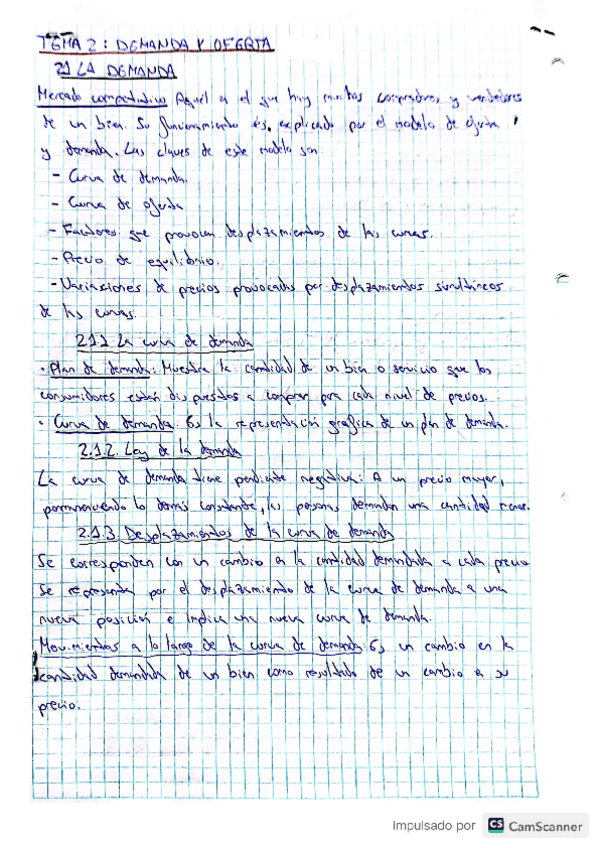 TEMA 2: DEMANDA Y OFERTA
2.1 LA DEMANDA
Mercado competitivo Aquel en el que hay muchos compradores y vendedores
de un bien. Su funcionamiento es explicado por el modelo de oferta
y demanda. Las claves de este modelo son
- Curva de demanda.
- Curva de oferta
- Factores que provocan desplazamientos de las curvas.
- Precio de equilibrio.
- Variaciones de precios provocados por desplazamientos simultáneos
de las curvas.
2.1.1 La curva de demanda
· Plan de demanda: Muestra la cantidad de un bien o servicio que los
consumidores están dispuestos a comprar para cada nivel de precios.
· Curva de demanda Es la representación gráfica de un plan de demanda.
2.1.2. Ley de la demanda
La curva de demanda tiene pendiente negativa: A un precio mayor,
permaneciendo lo demás constante, las personas demandan una cantidad menor.
2.1.3 Desplazamientos de la curva de demanda
Se corresponden con un cambio en la cantidad demandada a cada precio
Se representa por el desplazamiento de la curva de demanda a una
nueva posición e indica una nueva curva de demanda.
Movimientos a lo largo de la curva de demanda: Es un cambio en la
cantidad demandada de un bien como resultado de un cambio en su
precio.
Impulsado por CS CamScanner